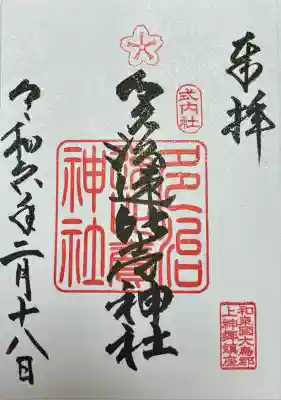 奉拝
式内社
和泉国大鳥郡
上神谷鎮座
多治速比売神社
多治
速比賣
神社
令和六年二月十八日